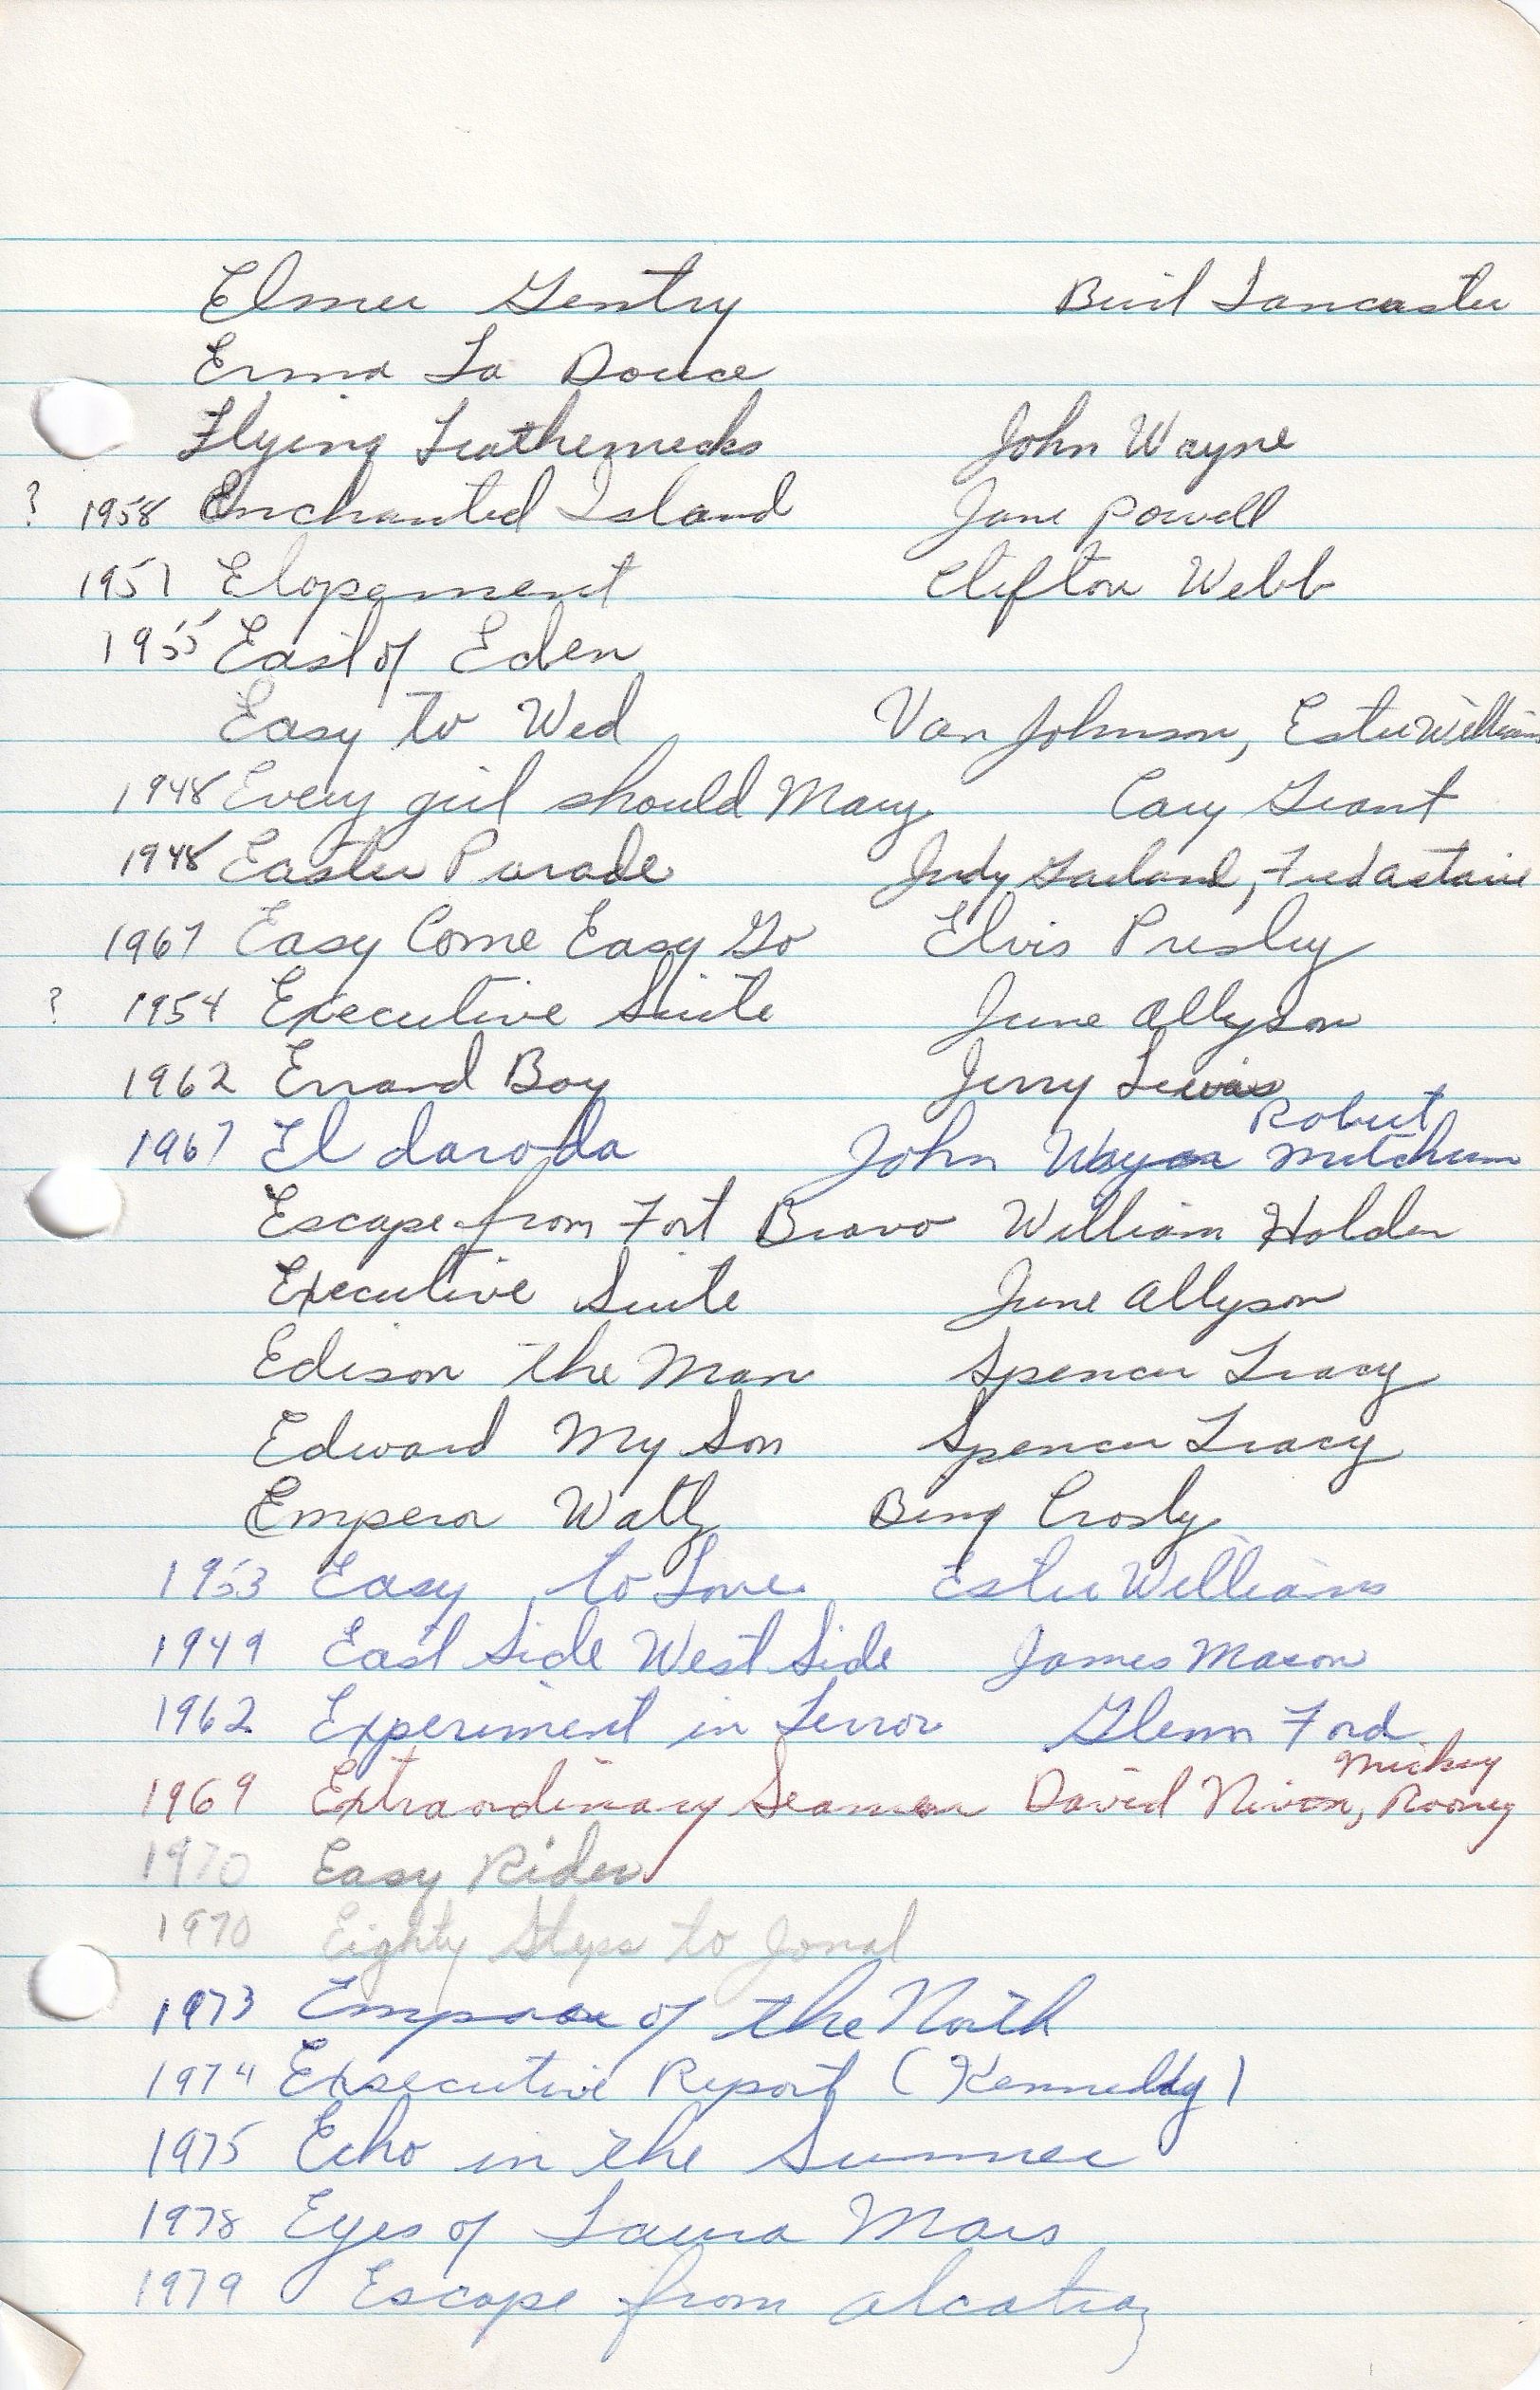 Elmer Gentry Burt Lancaster
Erma La Douce
Flying Leathernecks John Wayne
? 1958 Enchanted Island Jane Powell
1951 Elopement Clifton Webb
1955 East of Eden
Easy to Wed Van Johnson, Ester Williams
1948 Every girl should Marry Cary Grant
1948 Easter Parade Judy Garland, Fred Astaire
1967 Easy Come Easy Go Elvis Presley
? 1954 Executive Suite June Allyson
1962 Errand Boy Jerry Lewis
1967 El daroda John Wayne Robert Mitchum
Escape from Fort Bravo William Holden
Executive Suite June Allyson
Edison the Man Spencer Tracy
Edward My Son Spencer Tracy
Emperor Waltz Bing Crosby
1953 Easy to Love Ester Williams
1949 East Side West Side James Mason
1962 Experiment in Terror Glenn Ford
1969 Extraordinary Seaman David Niven, Mickey Rooney
1970 Easy Rider
1970 Eighty Steps to Jonal
1973 of the North
1974 Exsecutive Report (Kennedy)
1975 Echo in the Summer
1978 Eyes of Laura Mars
1979 Escape from Alcatraz